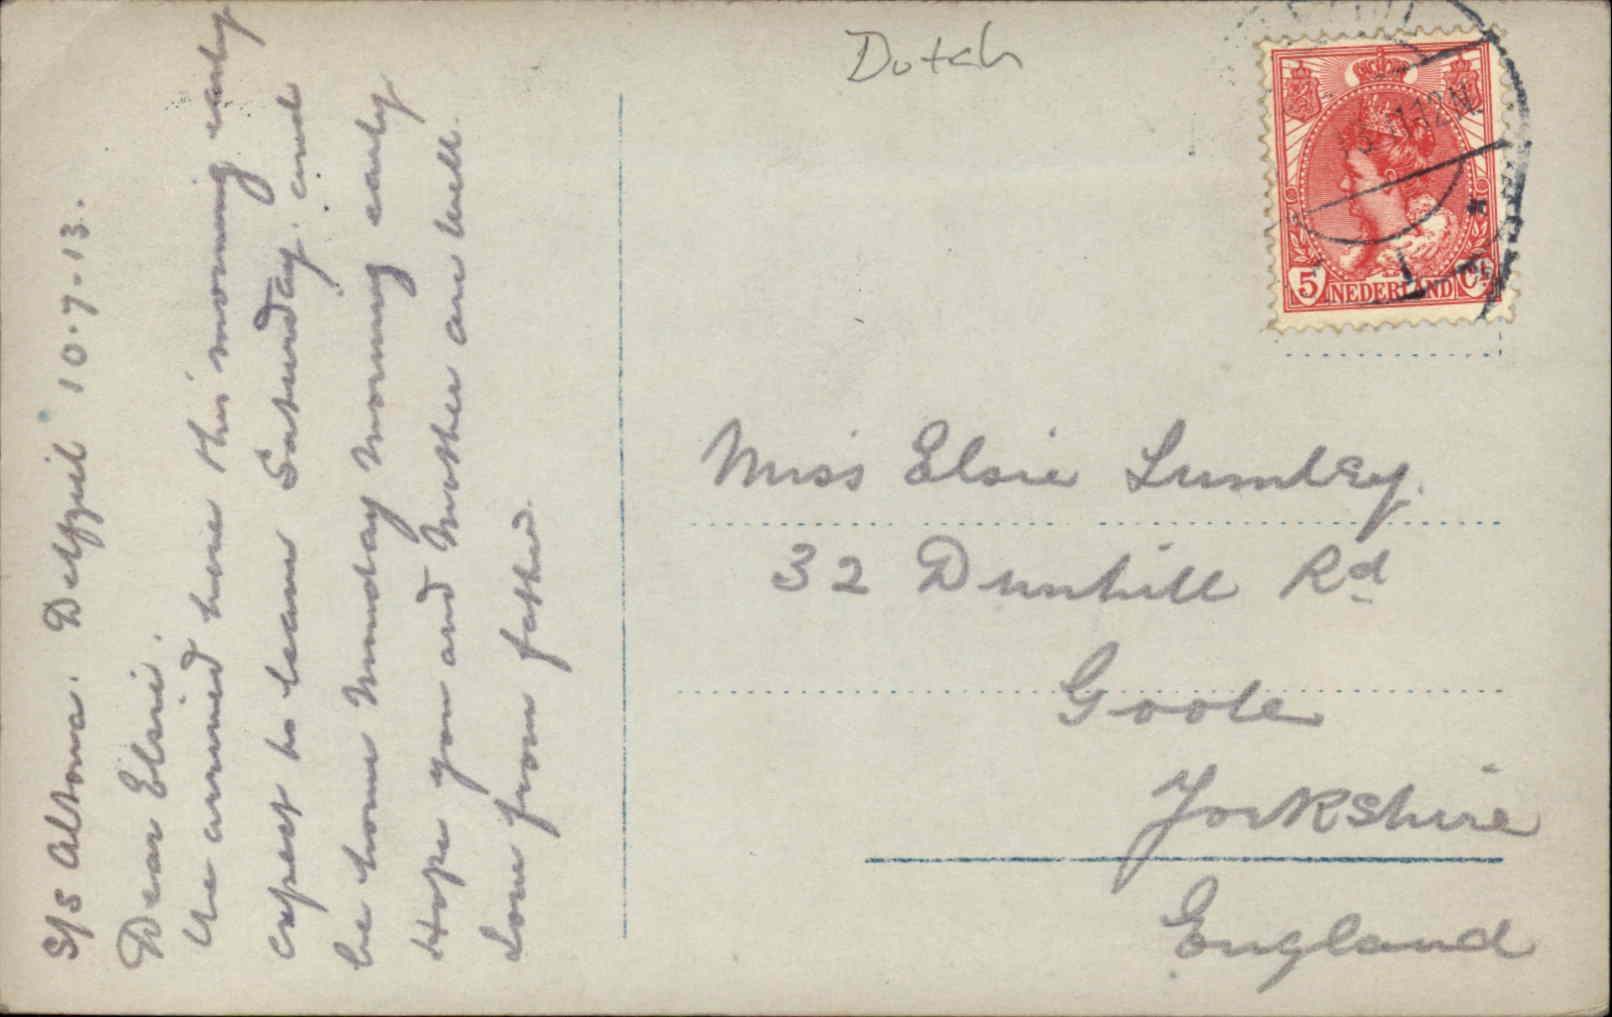 S/S Altona. Delfzijl 10-7-13.
Dear Elsie.
We arrived here this morning early
expect to leave Saturday. and
be home Monday Morning early
Hope you and Mother are well.
Love from father.
Dutch
11-12 N
5 NEDERLAND Ct
Miss Elsie Lumley.
32 Dunhill Rd
Goole
Yorkshire
England